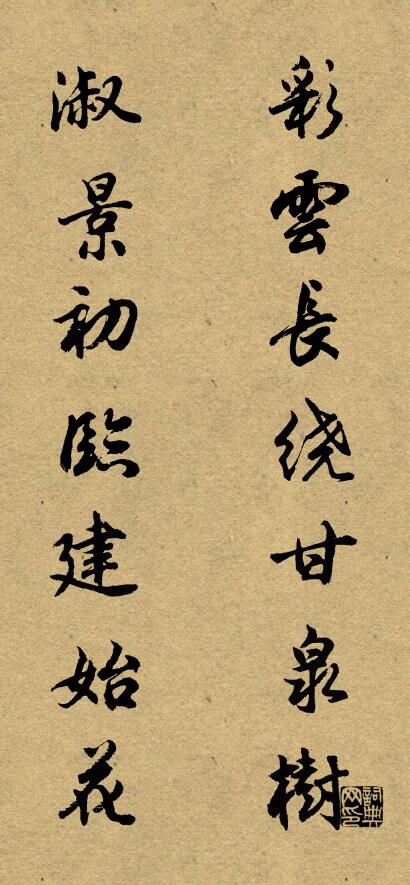 彩雲長绕甘泉樹
淑景初臨建始花
詞典网印